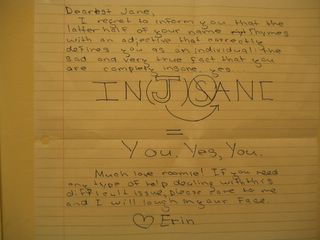 Dearest Jane,
I regret to inform you that the
latter half of your name rhymes
with an adjective that correctly
defines you as an individual: the
sad and very true fact that you
are completely insane. yes...
IN(J)SANE
=
You. Yes, You.
Much love roomie! If you need
any type of help dealing with this
difficult issue, please come to me
and I will laugh in your face.
♡ Erin